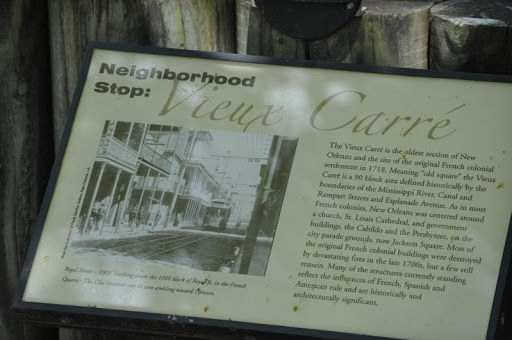 Neighborhood
Stop:
Vieux Carré
The Vieux Carré is the oldest section of New
Orleans and the site of the original French colonial
settlement in 1718. Meaning "old square" the Vieux
Carré is a 90 block area defined historically by the
boundaries of the Mississippi River, Canal and
Rampart Streets and Esplanade Avenue. As in most
French colonies, New Orleans was centered around
a church, St. Louis Cathedral, and government
buildings, the Cabildo and the Presbytere, on the
city parade grounds, now Jackson Square. Most of
the original French colonial buildings were destroyed
by devastating fires in the late 1700s, but a few still
remain. Many of the structures currently standing
reflect the influences of French, Spanish and
American rule and are historically and
architecturally significant.
Royal Street Looking down the 1000 block of Royal St. in the French
Quarter. The Clio Streetcar can be seen ambling toward